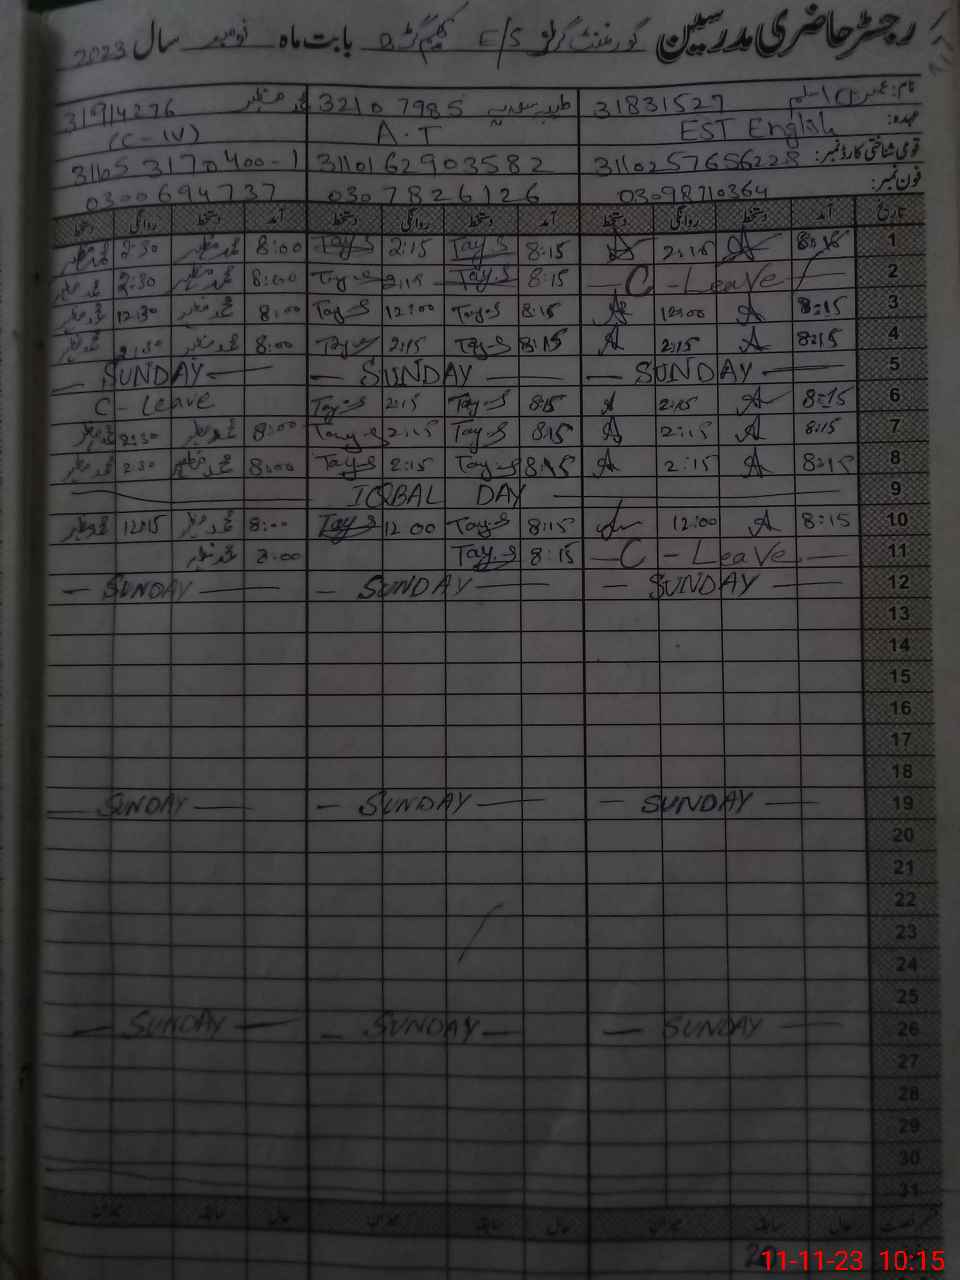 رجسٹر حاضری مدرسین گورنمنٹ گرلز E/S بابت ماہ نومبر سال 2023
نام: اسلم 31831527 طیبہ سعدیہ 32107985 محمد مظہر 31914276
عہدہ: EST English A.T (C-IV)
قومی شناختی کارڈ نمبر: 3110257656228 3110162903582 311053170400-1
فون نمبر: 03098710364 030 7826126 0300694737
تاریخ آمد دستخط روانگی دستخط آمد دستخط روانگی دستخط آمد دستخط روانگی دستخط
1 8:15 A 2:15 A 8:15 Tay-S 2:15 Tay-S 8:00 محمد مظہر 2:30 محمد مظہر
2 C - Leave 8:15 Tay-S 2:15 Tay-S 8:00 محمد مظہر 2:30 محمد مظہر
3 8:15 A 12:00 A 8:15 Tay-S 12:00 Tay-S 8:00 محمد مظہر 12:30 محمد مظہر
4 8:15 A 2:15 A 8:15 Tay-S 2:15 Tay-S 8:00 محمد مظہر 2:30 محمد مظہر
5 SUNDAY SUNDAY SUNDAY
6 8:15 A 2:15 A 8:15 Tay-S 2:15 Tay-S C - Leave
7 8:15 A 2:15 A 8:15 Tay-S 2:15 Tay-S 8:00 محمد مظہر 2:30 محمد مظہر
8 8:15 A 2:15 A 8:15 Tay-S 2:15 Tay-S 8:00 محمد مظہر 2:30 محمد مظہر
9 IQBAL DAY
10 8:15 A 12:00 8:15 Tay-S 12 00 Tay-S 8:00 محمد مظہر 12:15 محمد مظہر
11 C - Leave 8:15 Tay-S 8:00 محمد مظہر
12 SUNDAY SUNDAY SUNDAY
13
14
15
16
17
18
19 SUNDAY SUNDAY SUNDAY
20
21
22
23
24
25
26 SUNDAY SUNDAY SUNDAY
27
28
29
30
31
حال سابقہ میزان حال سابقہ میزان حال سابقہ میزان
11-11-23 10:15